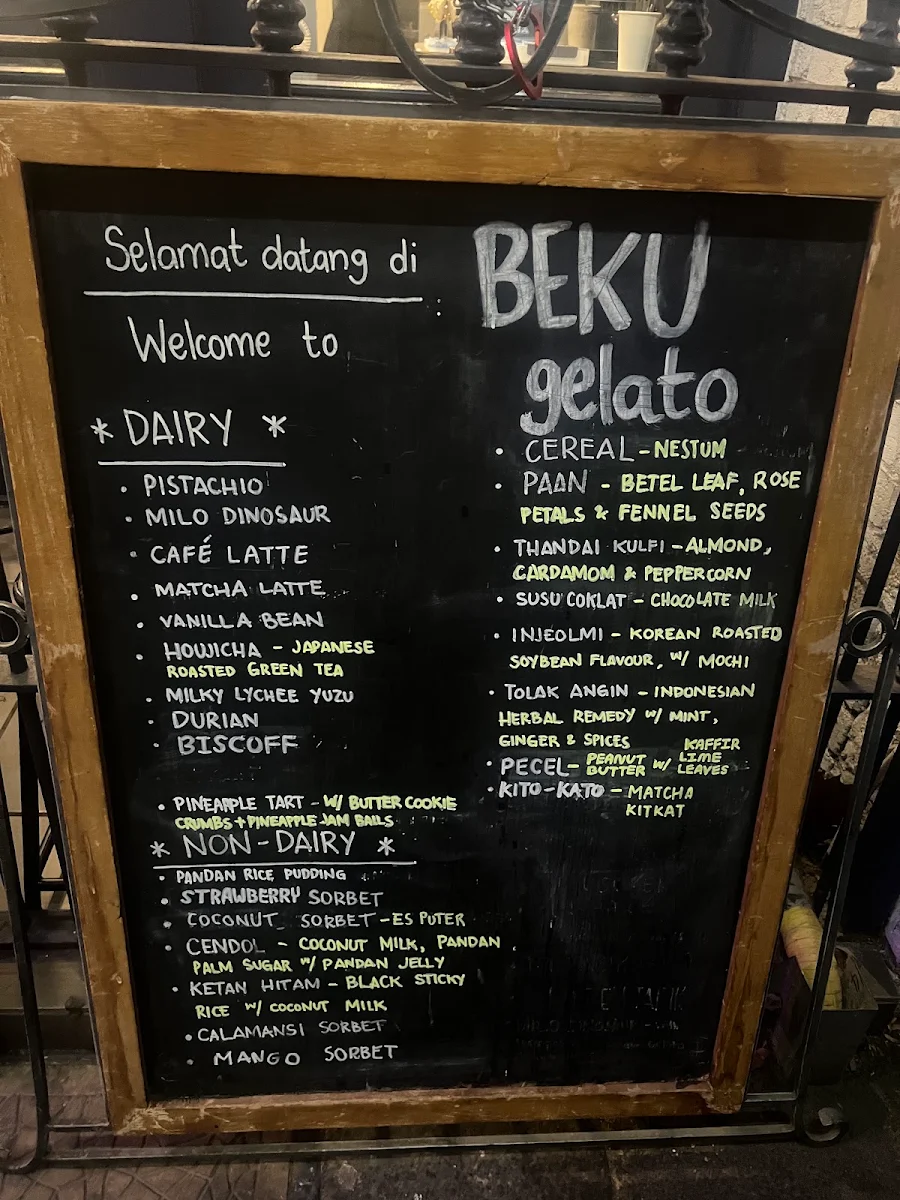 Selamat datang di
Welcome to :
BEKU
gelato
* DAIRY *
• PISTACHIO
• MILO DINOSAUR
• CAFÉ LATTE
• MATCHA LATTE
• VANILLA BEAN
• HOUJICHA - JAPANESE
ROASTED GREEN TEA
• MILKY LYCHEE YUZU
• DURIAN
• BISCOFF
• PINEAPPLE TART - W/ BUTTER COOKIE
CRUMBS + PINEAPPLE JAM BALLS
* NON-DAIRY *
• PANDAN RICE PUDDING
• STRAWBERRY SORBET
• COCONUT SORBET - ES PUTER
• CENDOL - COCONUT MILK, PANDAN
PALM SUGAR W/ PANDAN JELLY
• KETAN HITAM - BLACK STICKY
RICE W/ COCONUT MILK
• CALAMANSI SORBET
• MANGO SORBET
• CEREAL - NESTUM
• PAAN - BETEL LEAF, ROSE
PETALS & FENNEL SEEDS
• THANDAI KULFI - ALMOND,
CARDAMOM & PEPPERCORN
• SUSU COKLAT - CHOCOLATE MILK
• INJEOLMI - KOREAN ROASTED
SOYBEAN FLAVOUR, W/ MOCHI
• TOLAK ANGIN - INDONESIAN
HERBAL REMEDY W/ MINT,
GINGER & SPICES
• PECEL - PEANUT BUTTER W/ KAFFIR LIME LEAVES
• KITO-KATO - MATCHA
KITKAT